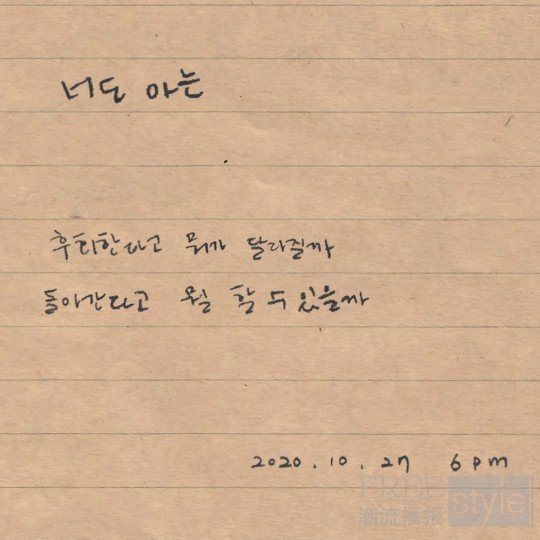 너도 아는
후회한다고 뭐가 달라질까
돌아간다고 뭘 할 수 있을까
2020.10.27 6pm
FREE style
潮流播报